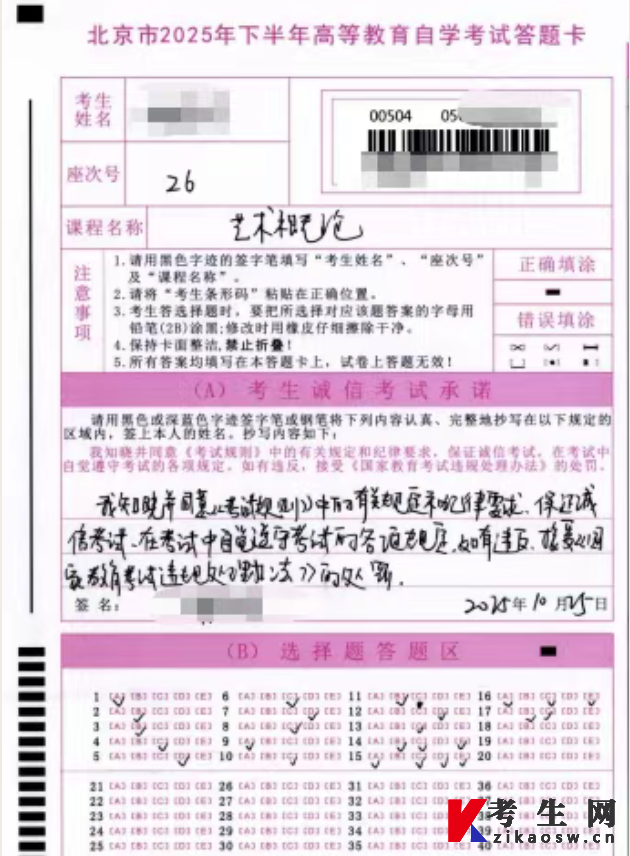 北京市2025年下半年高等教育自学考试答题卡
考生姓名
00504 05
座次号 26
课程名称 艺术概论
注意事项
1.请用黑色字迹的签字笔填写“考生姓名”、“座次号”
及“课程名称”。
2.请将“考生条形码”粘贴在正确位置。
3.考生答选择题时，要把所选择对应该题答案的字母用
铅笔(2B)涂黑;修改时用橡皮仔细擦除干净。
4.保持卡面整洁,禁止折叠!
5.所有答案均填写在本答题卡上，试卷上答题无效!
正确填涂
错误填涂
(A) 考生诚信考试承诺
请用黑色或深蓝色字迹签字笔或钢笔将下列内容认真、完整地抄写在以下规定的
区域内，签上本人的姓名。抄写内容如下:
我知晓并同意《考试规则》中的有关规定和纪律要求，保证诚信考试。在考试中
自觉遵守考试的各项规定，如有违反，接受《国家教育考试违规处理办法》的处罚。
我知晓并同意《考试规则》中的有关规定和纪律要求，保证诚
信考试。在考试中自觉遵守考试的各项规定，如有违反，接受《国
家教育考试违规处理办法》的处罚。
签名: 2025年10月25日
(B) 选择题答题区
1 [A] [B] [C] [D] [E] 6 [A] [B] [C] [D] [E] 11 [A] [B] [C] [D] [E] 16 [A] [B] [C] [D] [E]
2 [A] [B] [C] [D] [E] 7 [A] [B] [C] [D] [E] 12 [A] [B] [C] [D] [E] 17 [A] [B] [C] [D] [E]
3 [A] [B] [C] [D] [E] 8 [A] [B] [C] [D] [E] 13 [A] [B] [C] [D] [E] 18 [A] [B] [C] [D] [E]
4 [A] [B] [C] [D] [E] 9 [A] [B] [C] [D] [E] 14 [A] [B] [C] [D] [E] 19 [A] [B] [C] [D] [E]
5 [A] [B] [C] [D] [E] 10 [A] [B] [C] [D] [E] 15 [A] [B] [C] [D] [E] 20 [A] [B] [C] [D] [E]
21 [A] [B] [C] [D] [E] 26 [A] [B] [C] [D] [E] 31 [A] [B] [C] [D] [E] 36 [A] [B] [C] [D] [E]
22 [A] [B] [C] [D] [E] 27 [A] [B] [C] [D] [E] 32 [A] [B] [C] [D] [E] 37
23 [A] [B] [C] [D] [E] 28 [A] [B] [C] [D] [E] 33 [A] [B] [C] [D] [E] 38
24 [A] [B] [C] [D] [E] 29 [A] [B] [C] [D] [E] 34 [A] [B] [C] [D] [E] 39
25 [A] [B] [C] [D] [E] 30 [A] [B] [C] [D] [E] 35 [A] [B] [C] [D] [E] 40
考生网
zikaosw.cn